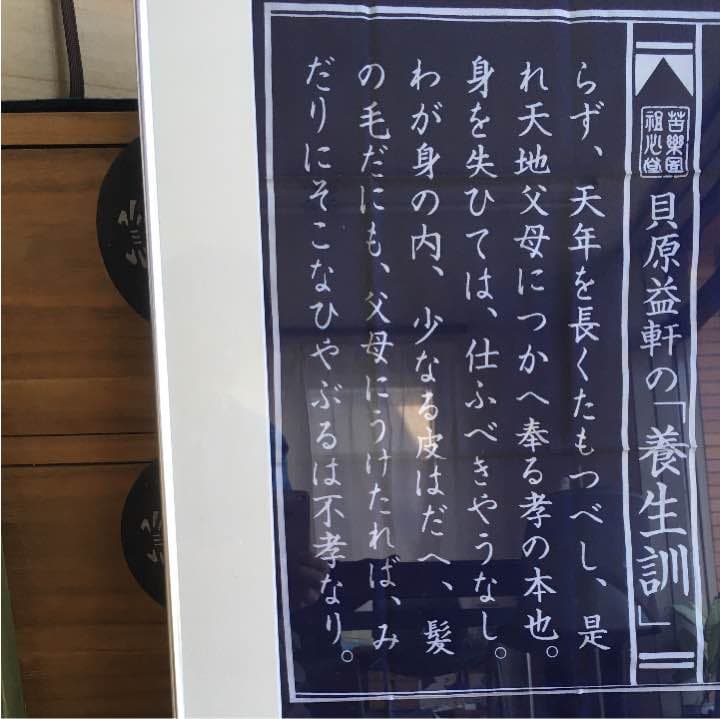 苦樂園
祖心堂
貝原益軒の「養生訓」
らず、天年を長くたもつべし、是
れ天地父母につかへ奉る孝の本也。
身を失ひては、仕ふべきやうなし。
わが身の内、少なる皮はだへ、髪
の毛だにも、父母にうけたれば、み
だりにそこなひやぶるは不孝なり。